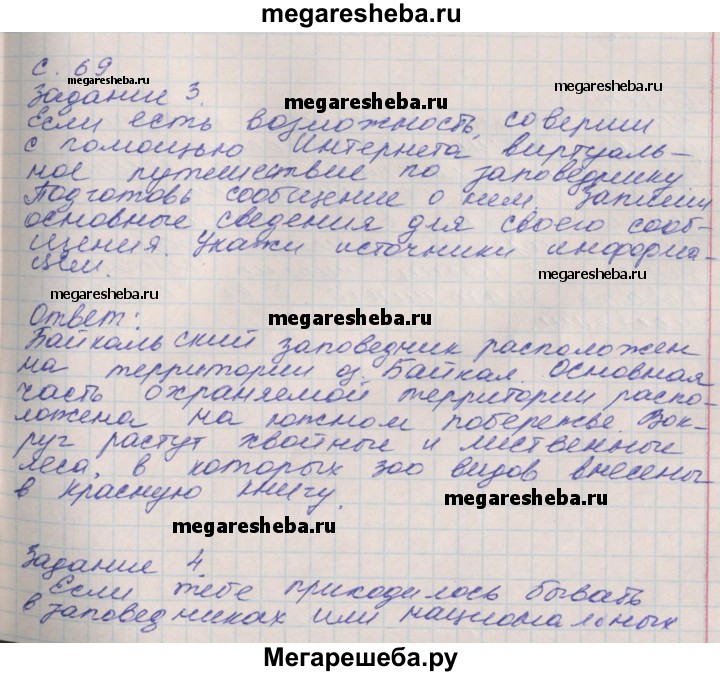 megaresheba.ru
с. 69
megaresheba.ru
megaresheba.ru
Задание 3.
megaresheba.ru
Если есть возможность, соверши
с помощью Интернета виртуаль-
ное путешествие по заповеднику.
Подготовь сообщение о нем. Запиши
основные сведения для своего сооб-
щения. Укажи источники информа-
ции.
megaresheba.ru
megaresheba.ru
Ответ:
megaresheba.ru
Байкальский заповедник расположен
на территории оз. Байкал. Основная
часть охраняемой территории распо-
ложена на южном побережье. Вок-
руг растут хвойные и лиственные
леса, в которых 300 видов внесены
в красную книгу.
megaresheba.ru
megaresheba.ru
Задание 4.
Если тебе приходилось бывать
в заповедниках или национальных
Мегарешеба.ру